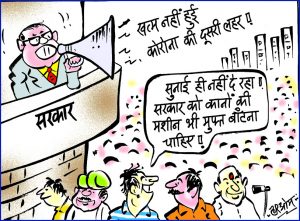 खत्म नहीं हुई
कोरोना की दूसरी लहर !!
सरकार
सुनाई ही नहीं दे रहा !
सरकार को कानों की
मशीन भी मुफ्त बाँटना
चाहिए !!